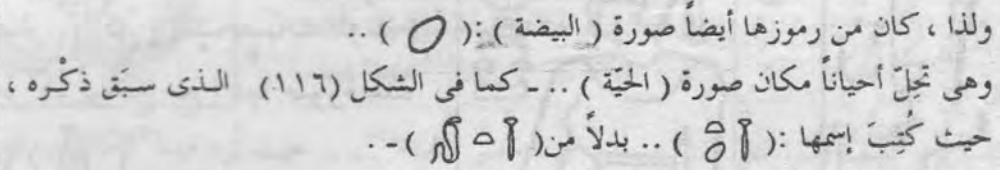 ولذا ، كان من رموزها أيضاً صورة ( البيضة ) :( ) ..
وهى تحِلّ أحياناً مكان صورة ( الحيّة ) .. ـ كما فى الشكل (١١٦) الـذى سـبَق ذكْـره ،
حيث كُتِبَ إسمها :( ) .. بدلاً من( )ـ .